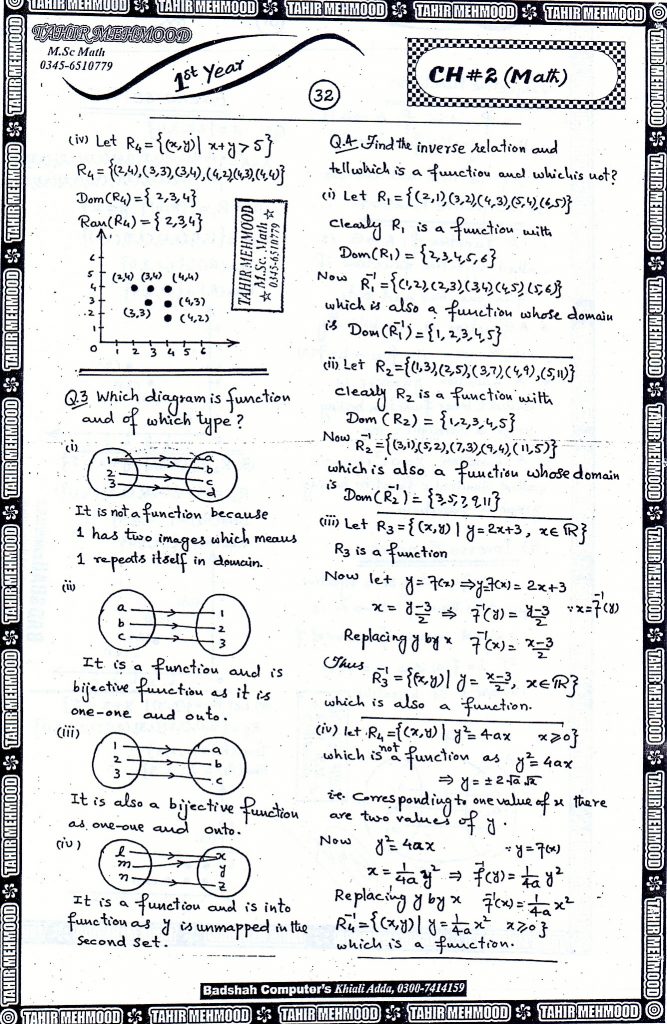 TAHIR MEHMOOD TAHIR MEHMOOD TAHIR MEHMOOD TAHIR MEHMOOD TAHIR MEHMOOD
TAHIR MEHMOOD
M.Sc Math
0345-6510779
1st Year
32
CH#2 (Math)
(iv) Let R₄={(x,y)| x+y>5}
R₄={(2,4),(3,3),(3,4),(4,2)(4,3),(4,4)}
Dom(R₄)={2,3,4}
Ran(R₄)={2,3,4}
TAHIR MEHMOOD
M.Sc. Math
0345-6510779
6
5 (2,4) (3,4) (4,4)
4
3 (4,3)
2 (3,3) (4,2)
1
0 1 2 3 4 5 6
Q.3 Which diagram is function
and of which type?
(i)
1 a
2 b
3 c
d
It is not a function because
1 has two images which means
1 repeats itself in domain.
(ii)
a 1
b 2
c 3
It is a function and is
bijective function as it is
one-one and onto.
(iii)
1 a
2 b
3 c
It is also a bijective function
as one-one and onto.
(iv)
l x
m y
n z
It is a function and is into
function as y is unmapped in the
Second Set.
Q.4 Find the inverse relation and
tell which is a function and which is not?
(i) Let R₁={(2,1),(3,2),(4,3),(5,4),(6,5)}
Clearly R₁ is a function with
Dom(R₁) = {2,3,4,5,6}
Now R₁⁻¹={(1,2),(2,3),(3,4)(4,5)(5,6)}
which is also a function whose domain
is Dom(R₁⁻¹)={1,2,3,4,5}
(ii) Let R₂={(1,3),(2,5),(3,7)(4,9),(5,11)}
Clearly R₂ is a function with
Dom(R₂) = {1,2,3,4,5}
Now R₂⁻¹={(3,1),(5,2),(7,3),(9,4)(11,5)}
which is also a function whose domain
is Dom(R₂⁻¹)={3,5,7,9,11}
(iii) Let R₃={(x,y)| y=2x+3, x∈ℝ}
R₃ is a function
Now let y=f(x) ⇒y=f(x)=2x+3
x = y-3/2 ⇒ f⁻¹(y)= y-3/2 ∵x=f⁻¹(y)
Replacing y by x f⁻¹(x)= x-3/2
Thus
R₃⁻¹={(x,y)| y= x-3/2, x∈ℝ}
which is also a function.
(iv) let R₄={(x,y)| y²=4ax x≥0}
which is not a function as y²=4ax
⇒ y=±2√a√x
i.e. Corresponding to one value of x there
are two values of y.
Now y²=4ax ∵y=f(x)
x= 1/4a y² ⇒ f⁻¹(y)= 1/4a y²
Replacing y by x f⁻¹(x)= 1/4a x²
R₄⁻¹={(x,y)| y= 1/4a x² x≥0}
which is a function.
Badshah Computer's Khiali Adda, 0300-7414159
TAHIR MEHMOOD TAHIR MEHMOOD TAHIR MEHMOOD TAHIR MEHMOOD TAHIR MEHMOOD